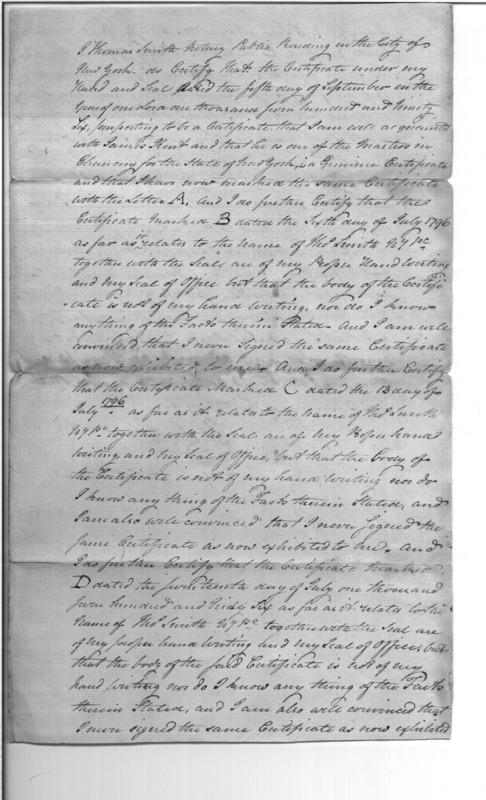 I Thomas Smith Notary Public Residing in the City of
New York. do Certify that the Certificate under my
Hand and Seal dated the fifth day of September in the
Year of our Lord one thousand seven hundred and Ninety
Six, purporting to be a Certificate that I am well acquainted
with James Kent and that he is one of the Masters in
Chancery for the State of New York, is a Genuine Certificate
and that I have now marked the same Certificate
with the Letter A. And I do further Certify that the
Certificate Marked B dated the Sixth day of July 1796
as far as it relates to the Name of Tho.s Smith N.y P.c
together with the Seals are of my Proper Hand Writing
and my Seal of Office but that the body of the Certifi
cate is not of my hand Writing, nor do I know
any thing of the Facts therein Stated. And I am well
convinced that I never Signed the same Certificate
as now exhibited to me. And I do further Certify
that the Certificate Marked C dated the 13 day of
July 1796 as far as it relates to the Name of Tho.s Smith
N.y P.c together with the Seal are of my Proper hand
Writing, and my Seal of Office, but that the body of
the Certificate is not of my hand Writing nor do
I know any thing of the Facts therein Stated, and
I am also well convinced that I never Signed the
same Certificate as now exhibited to me. And
I do further Certify that the Certificate Marked
D dated the fourteenth day of July one thousand
seven hundred and Ninety Six as far as it relates to the
Name of Tho.s Smith N.y P.c together with the Seal are
of my proper hand Writing and my Seal of Office, but
that the body of the said Certificate is not of my
hand Writing nor do I know any thing of the Facts
therein Stated, and I am also well convinced that
I never signed the same Certificate as now exhibited